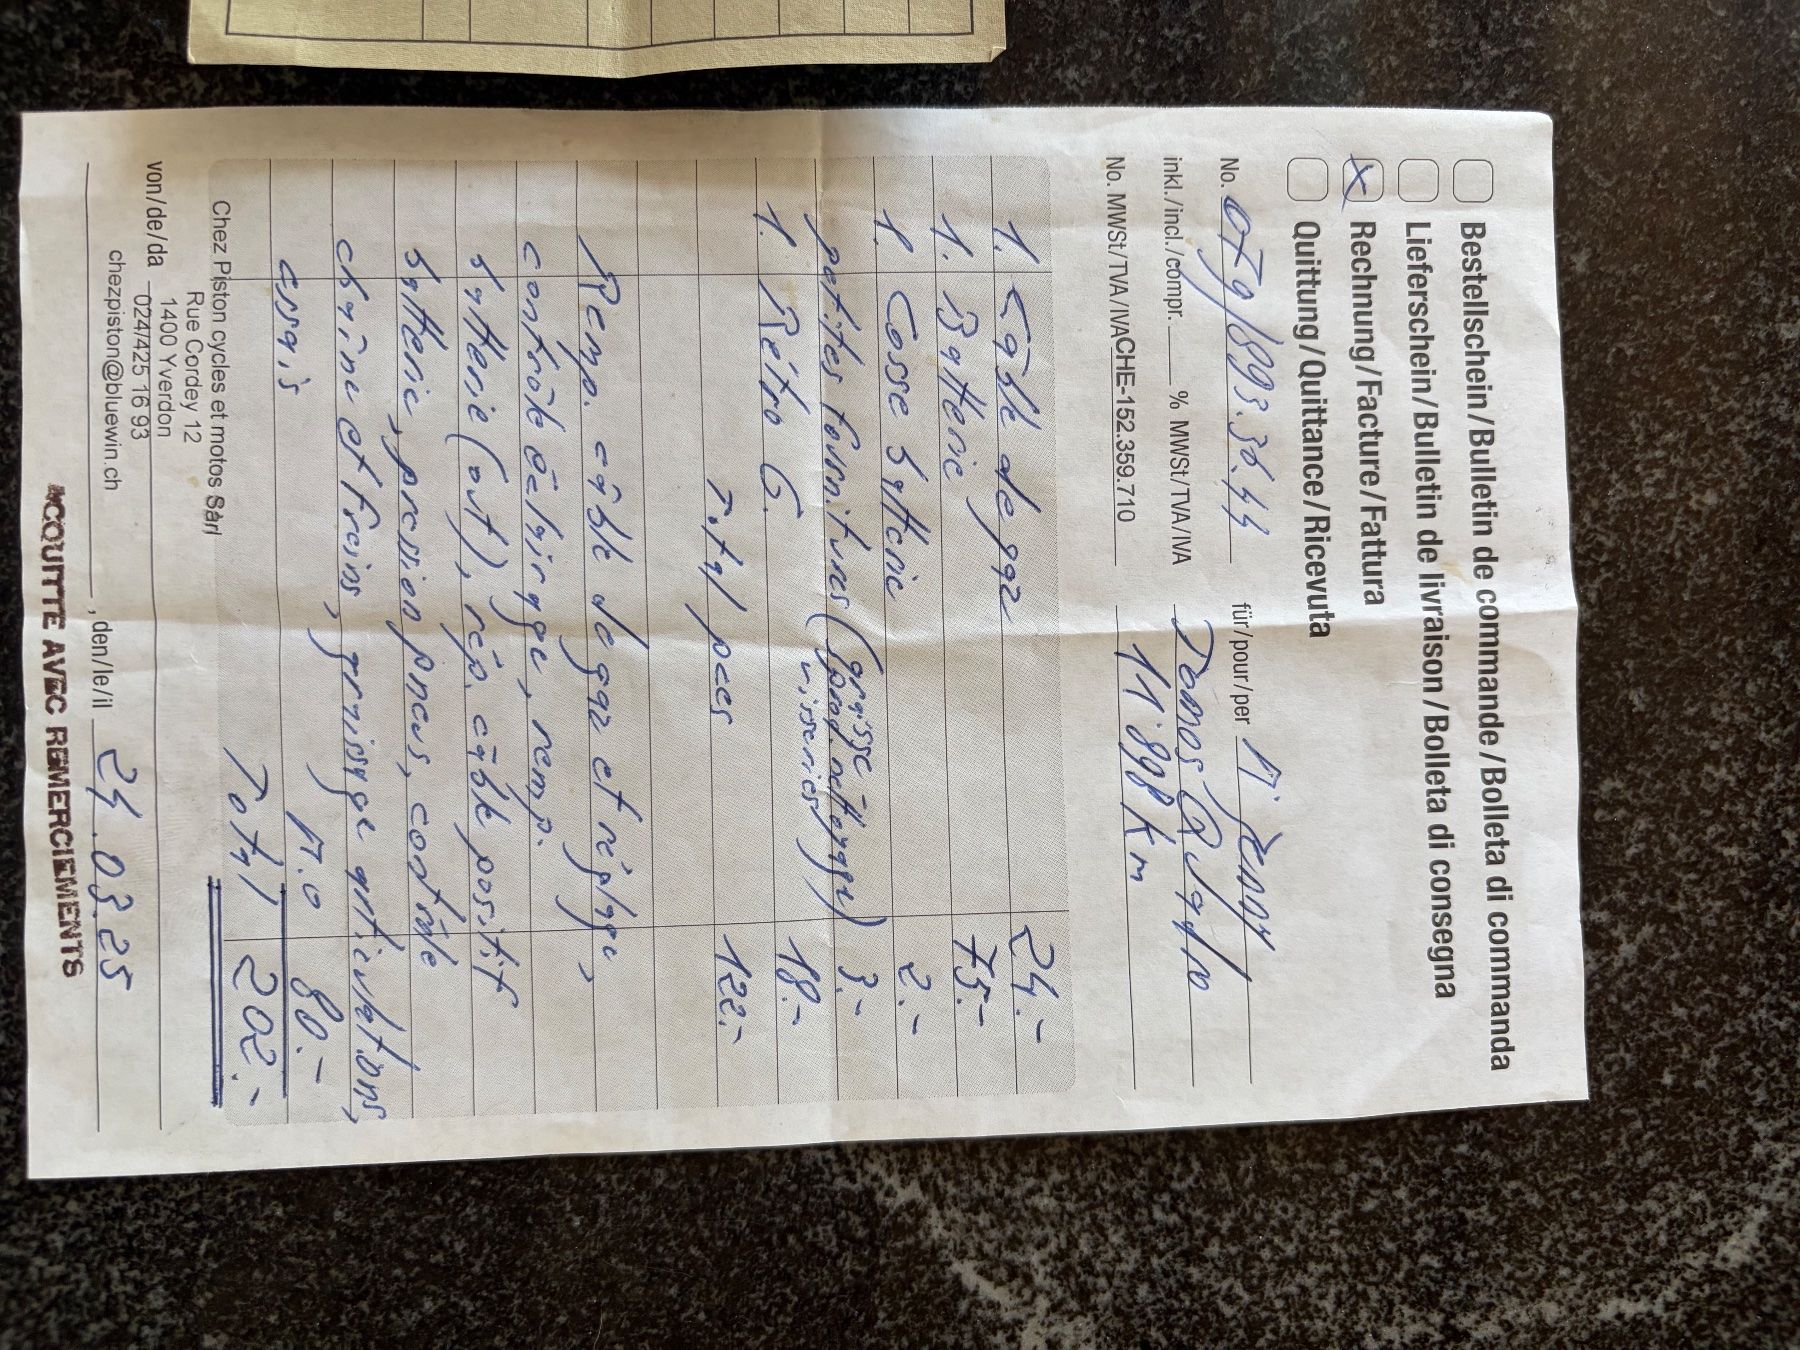 Bestellschein/Bulletin de commande/Bolleta di commanda
Lieferschein/Bulletin de livraison/Bolleta di consegna
x Rechnung/Facture/Fattura
Quittung/Quittance/Ricevuta
No. 079/893.36.44
für/pour/per M. Jenny
inkl./incl./compr. % MWSt/TVA/IVA
No. MWSt/TVA/IVA CHE-152.359.710
11'898 km
1. Câble de gaz 24.-
1. Batterie 75.-
1. Cosse batterie 2.-
petites fournitures (graisse, prod. nettoyage, visseries) 3.-
1. Rétro G. 18.-
Total pces 122.-
Remp. câble de gaz et réglage,
contrôle éclairage, remp.
batterie (aut), rép. câble positif
batterie, pression pneus, contrôle
chaîne et freins, graissage articulations,
essais M.O 80.-
Total 202.-
Chez Piston cycles et motos Sàrl
Rue Cordey 12
1400 Yverdon
von/de/da 024/425 16 93
chezpiston@bluewin.ch
, den/le/il 24.03.25
ACQUITTE AVEC REMERCIEMENTS